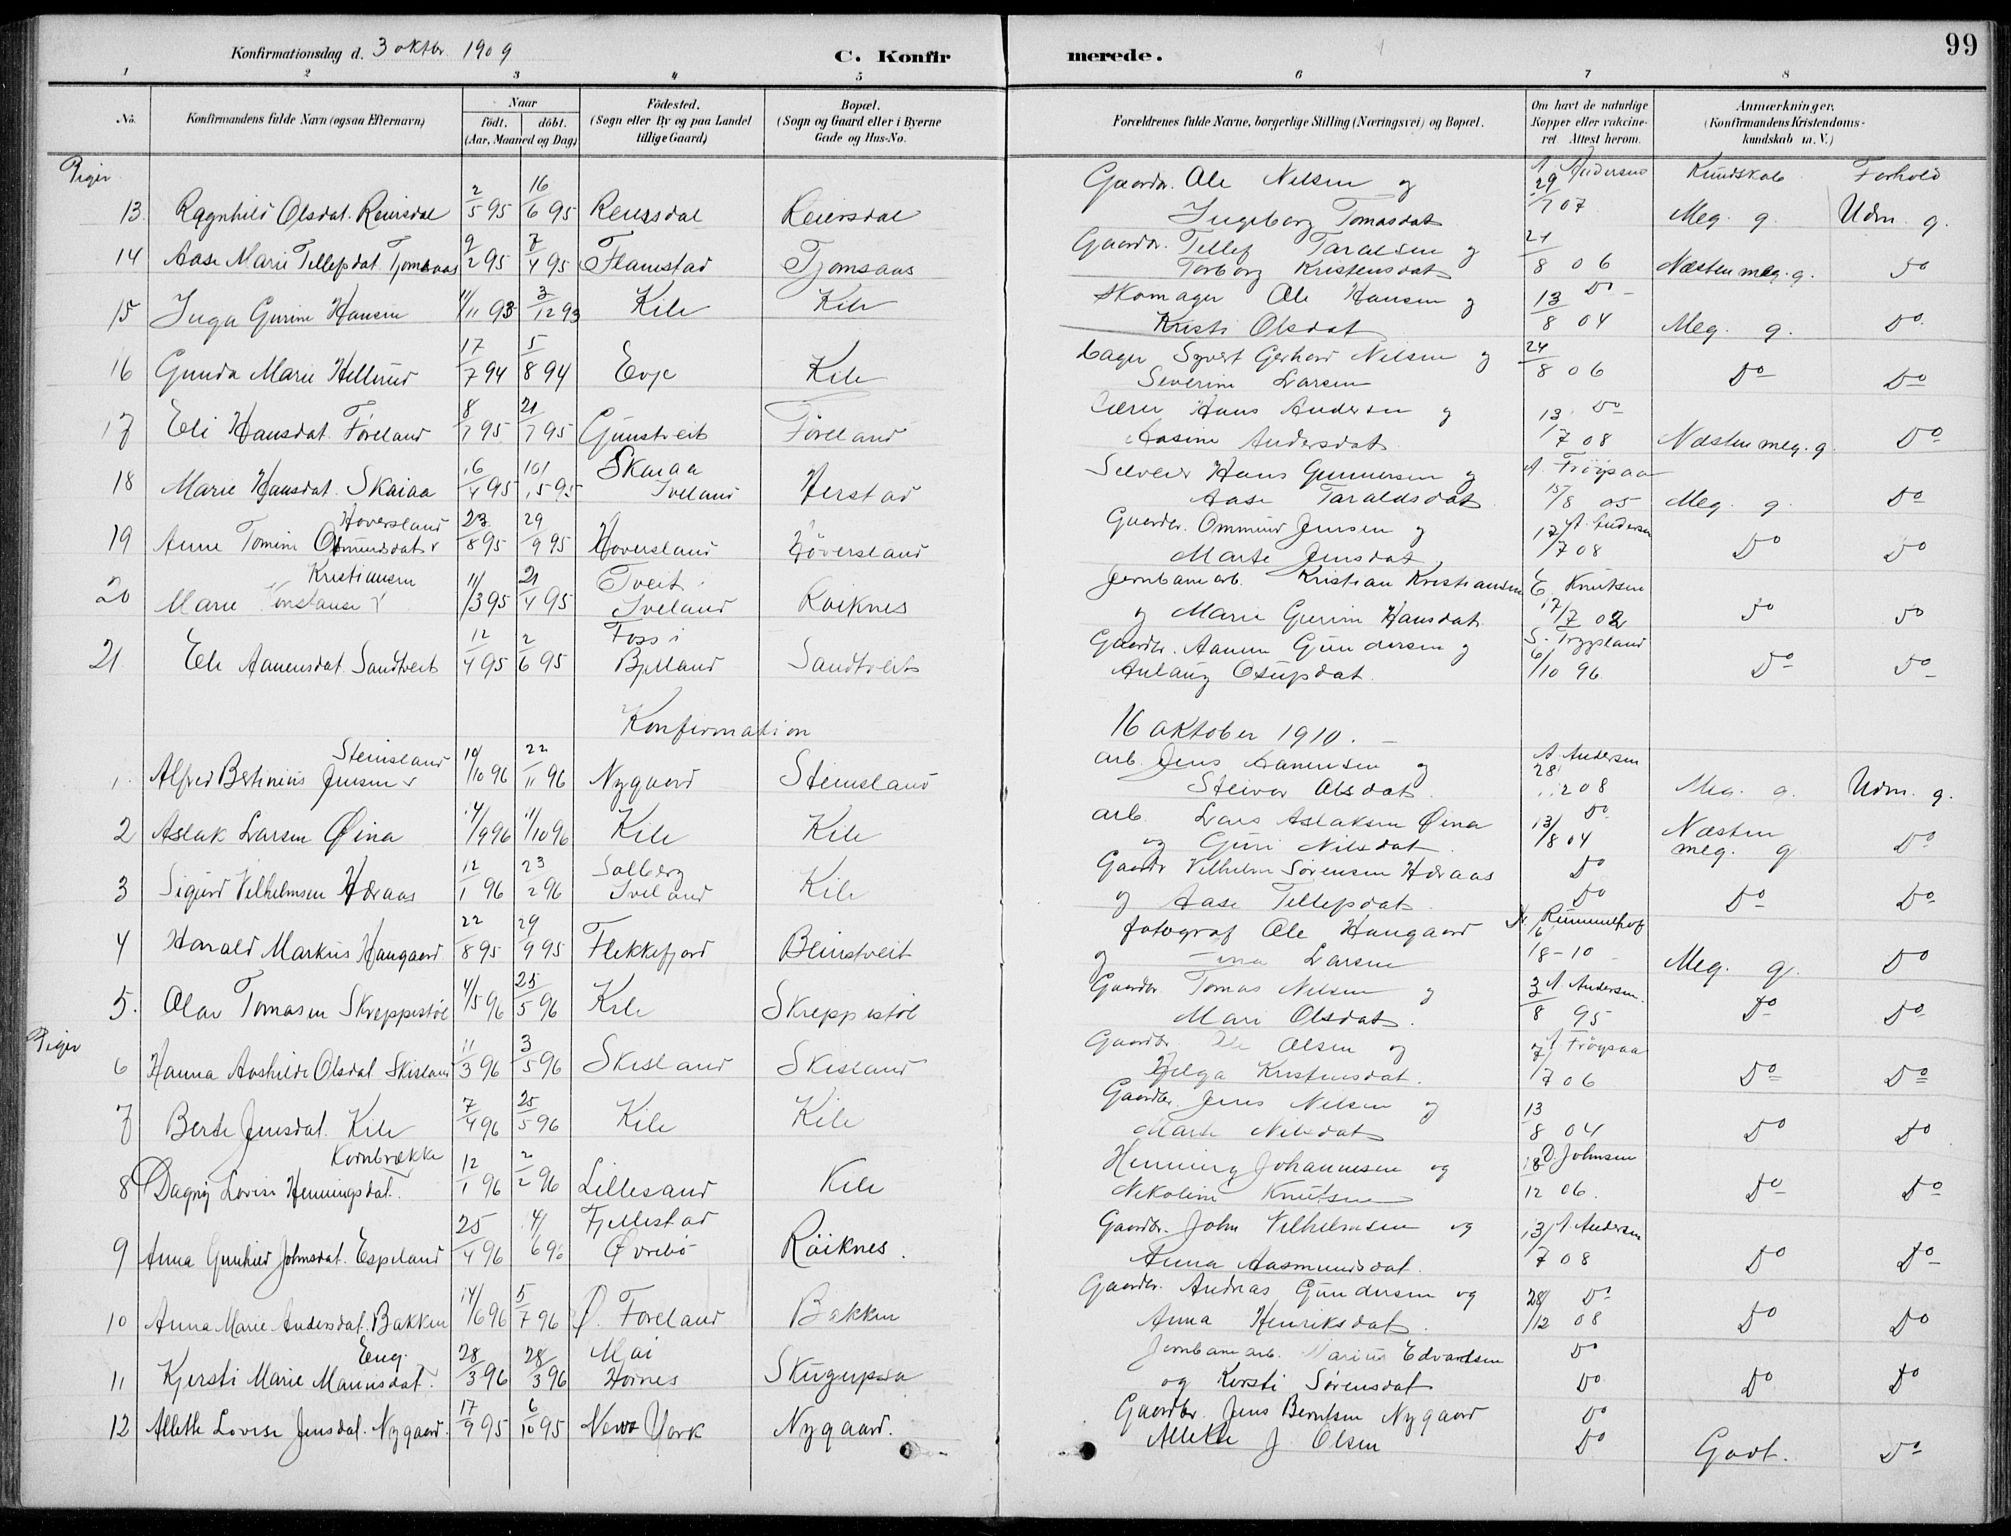 Konfirmationsdag d. 3 oktbr. 1909 C. Konfirmerede. 99
1 2 3 4 5 6 7 8
No. Konfirmandens fulde Navn (ogsaa Efternavn) Naar født. døbt. (Aar, Maaned og Dag) Födested. (Sogn eller By og paa Landet tillige Gaard) Bopæl. (Sogn og Gaard eller i Byerne Gade og Hus-No. Forældrenes fulde Navne, borgerlige Stilling (Næringsvei) og Bopæl. Om havt de naturlige Kopper eller vakcineret Attest herom. Anmærkninger. (Konfirmandens Kristendomskundskab m. V.)
Piger Kundskab Forhold
13. Ragnhild Olsdat. Reiersdal 2/5 95 16/6 95 Reiersdal Reiersdal Gaardbr. Ole Nilsen og Ingeborg Tomasdat A. Andersen 29/7 07 Meg. g. Udm. g.
14 Aase Marie Tellefsdat. Tjomsaas 9/2 95 7/4 95 Flamstad Tjomsaas Gaardbr. Tellef Taraldsen og Torborg Kristensdat 21/8 06 Næsten meg. g. Do
15 Inga Gurine Hansen 11/11 93 3/12 93 Kile Kile Skomager Ole Hansen og Kristi Olsdat Do 13/8 04 Meg. g. Do
16 Gunda Marie Hellerud 17/7 94 5/8 94 Evje Kile bager Syvert Gerhard Nilsen og Severine Larsen 24/8 06 Do Do
17 Eli Hansdat. Føreland 8/7 95 21/7 95 Gunstveit Føreland Lærer Hans Andersen og Aasine Andersdat. Do 13/7 08 Næsten meg. g. Do
18 Marie Hansdat. Skaiaa 16/4 95 10/5 95 Skaiaa Iveland Herstad Selveier Hans Gunnersen og Aase Taraldsdat A. Frøysaa 15/8 05 Meg. g. Do
19 Anne Tomine Omundsdat Hoversland 23/8 95 29/9 95 Hoversland Høversland Gaardbr. Ommund Jensen og Marte Jensdat A. Andersen 17/7 08 Do Do
20 Marie Konstanse Kristiansen 11/3 95 21/4 95 Tveit Iveland Røiknes Jernbanearb. Kristian Kristiansen og Marie Gurine Hansdat. E. Knutsen 17/7 02 Do Do
21 Eli Aanensdat. Sandtveit 12/4 95 2/6 95 Foss i Bjelland Sandtveit Gaardbr. Aanen Gundersen og Anlaug Osufsdat. S. Trygsland 6/10 96 Do Do
Konfirmation 16 oktober 1910.
1. Alfred Bertinius Jensen Steinsland 19/10 96 22/11 96 Nygaard Steinsland arb. Jens Aanensen og Steivor Olsdat. A. Andersen 28/12 08 Meg. g. Udm. g.
2 Aslak Larsen Øina 14/9 96 11/10 96 Kile Kile arb. Lars Aslaksen Øina og Guri Nilsdat. Do 13/8 04 Næsten meg. g Do
3 Sigurd Vilhelmsen Høraas 12/1 96 23/2 96 Solberg Iveland Kile Gaardbr Vilhelm Sørensen Høraas og Aase Tellefsdat. Do Do Do Do
4 Harald Markus Haugaard 22/8 95 29/9 95 Flekkefjord Beinstveit fotograf Ole Haugaard og Larsen 18-10 Meg. g. Do
5. Olav Tomasen Skreppestøl 4/5 96 25/5 96 Kile Skreppestøl Gaardbr Tomas Nilsen og Mari Olsdat. A. Andersen. 3/8 95 Do Do
Piger
6 Hanna Aashilde Olsdat Skisland 11/3 96 3/5 96 Skisland Skisland Gaardbr. Ole Olsen og Helga Kristensdat. A Frøysaa 7/7 06 Do Do
7 Berte Jensdat. Kile 7/4 96 25/5 96 Kile Kile Gaardbr. Jens Nilsen og Marte Nilsdat 13/8 04 Do Do
8 Dagny Lovise Henningsdat. Kornbrække 12/1 96 2/2 96 Lillesand Kile Henning Johannesen og Nikoline Knutsen D. Johnsen 18/12 06. Do Do
9 Anna Gunhild Johnsdat. Espeland 25/4 96 14/6 96 Fjellestad Øvrebø Röiknes. Gaardbr. John Vilhelmsen og Anna Aasmundsdat. A Andersen 13/7 08 Do Do
10 Anna Marie Andersdat. Bakken 14/6 96 5/7 96 Ø. Foreland Bakken Gaardbr. Andreas Gundersen og Anna Henriksdat. Do 28/12 08 Do Do
11 Kjersti Marie Mariusdat. Eng. 28/3 96 28/3 96 Moi Hornes Jernbanearb. Marius Edvardsen og Kersti Sørensdat Do Do Do Do
12 Allette Lovise Jensdat. Nygaard. 17/9 95 6/10 95 New York Nygaard. Gaardbr. Jens Berntsen Nygaard Allette J. Olsen Do Do Godt. Do